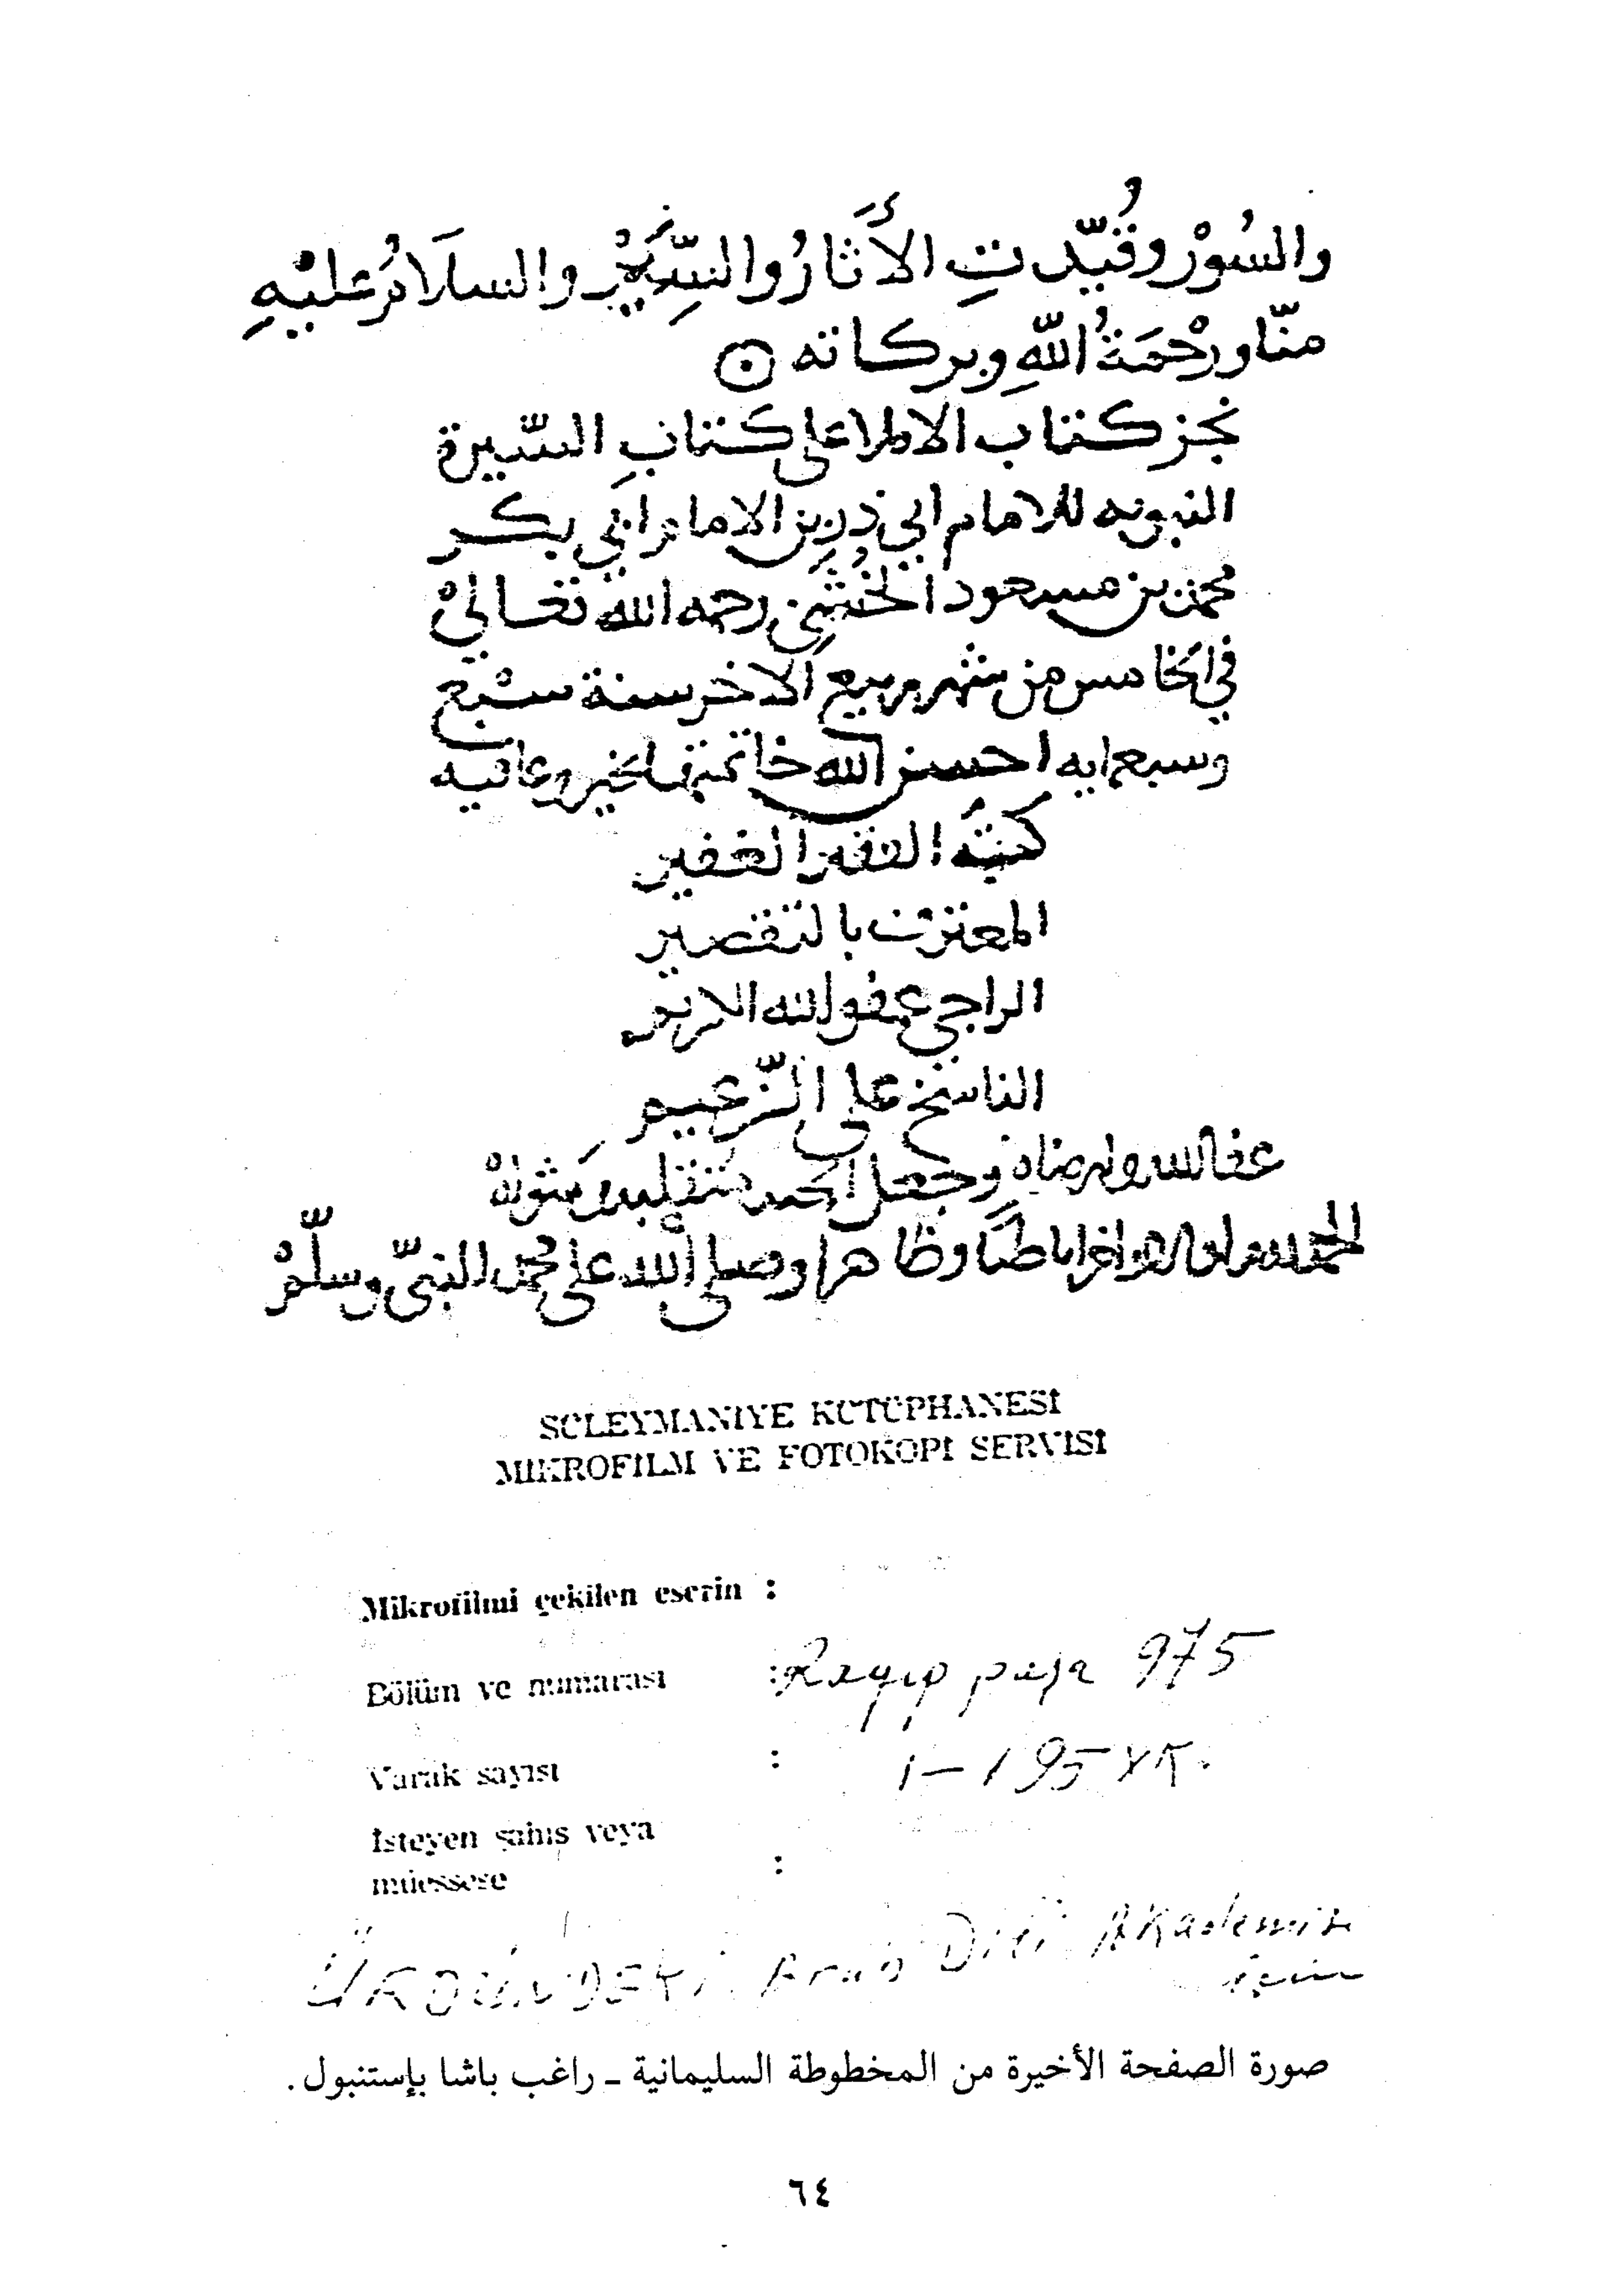 والسُوَرْ وقُيّدتِ الأَثارُ والسِّيَرْ والسلَامُ عليْهِ
منّا ورحْمَةُ اللّهِ وبركاته
نجز كتاب الاملا على كتابِ السّيرة
النبويه للامام ابي ذر بن الامام ابي بكر
محمد بن مسعود الخُشَنِي رحمه الله تعَالىْ
في الخامس من شهر ربيع الاخر سنة سبْع
وسبعمايه احسن الله خاتمتها بخير وعافيه
كتبَهُ الفقير
المعترف بالتقصير
الراجي عفو الله
الناسخ علي الزّعيم
عفا الله وجعل
باطنًا وظاهرا وصلى الله على محمد النبيّ وسلّمْ
SÜLEYMANİYE KÜTÜPHANESİ
MİKROFİLM VE FOTOKOPİ SERVİSİ
Mikrofilmi çekilen eserin :
Bölüm ve numarası : Ragıp paşa 975
Varak sayısı : 1-195 YK.
İsteyen şahıs veya
müessese :
ÜRDÜN'DEKİ Arap Dili Akademisi
için
صورة الصفحة الأخيرة من المخطوطة السليمانية ـ راغب باشا بإستنبول.
٦٤